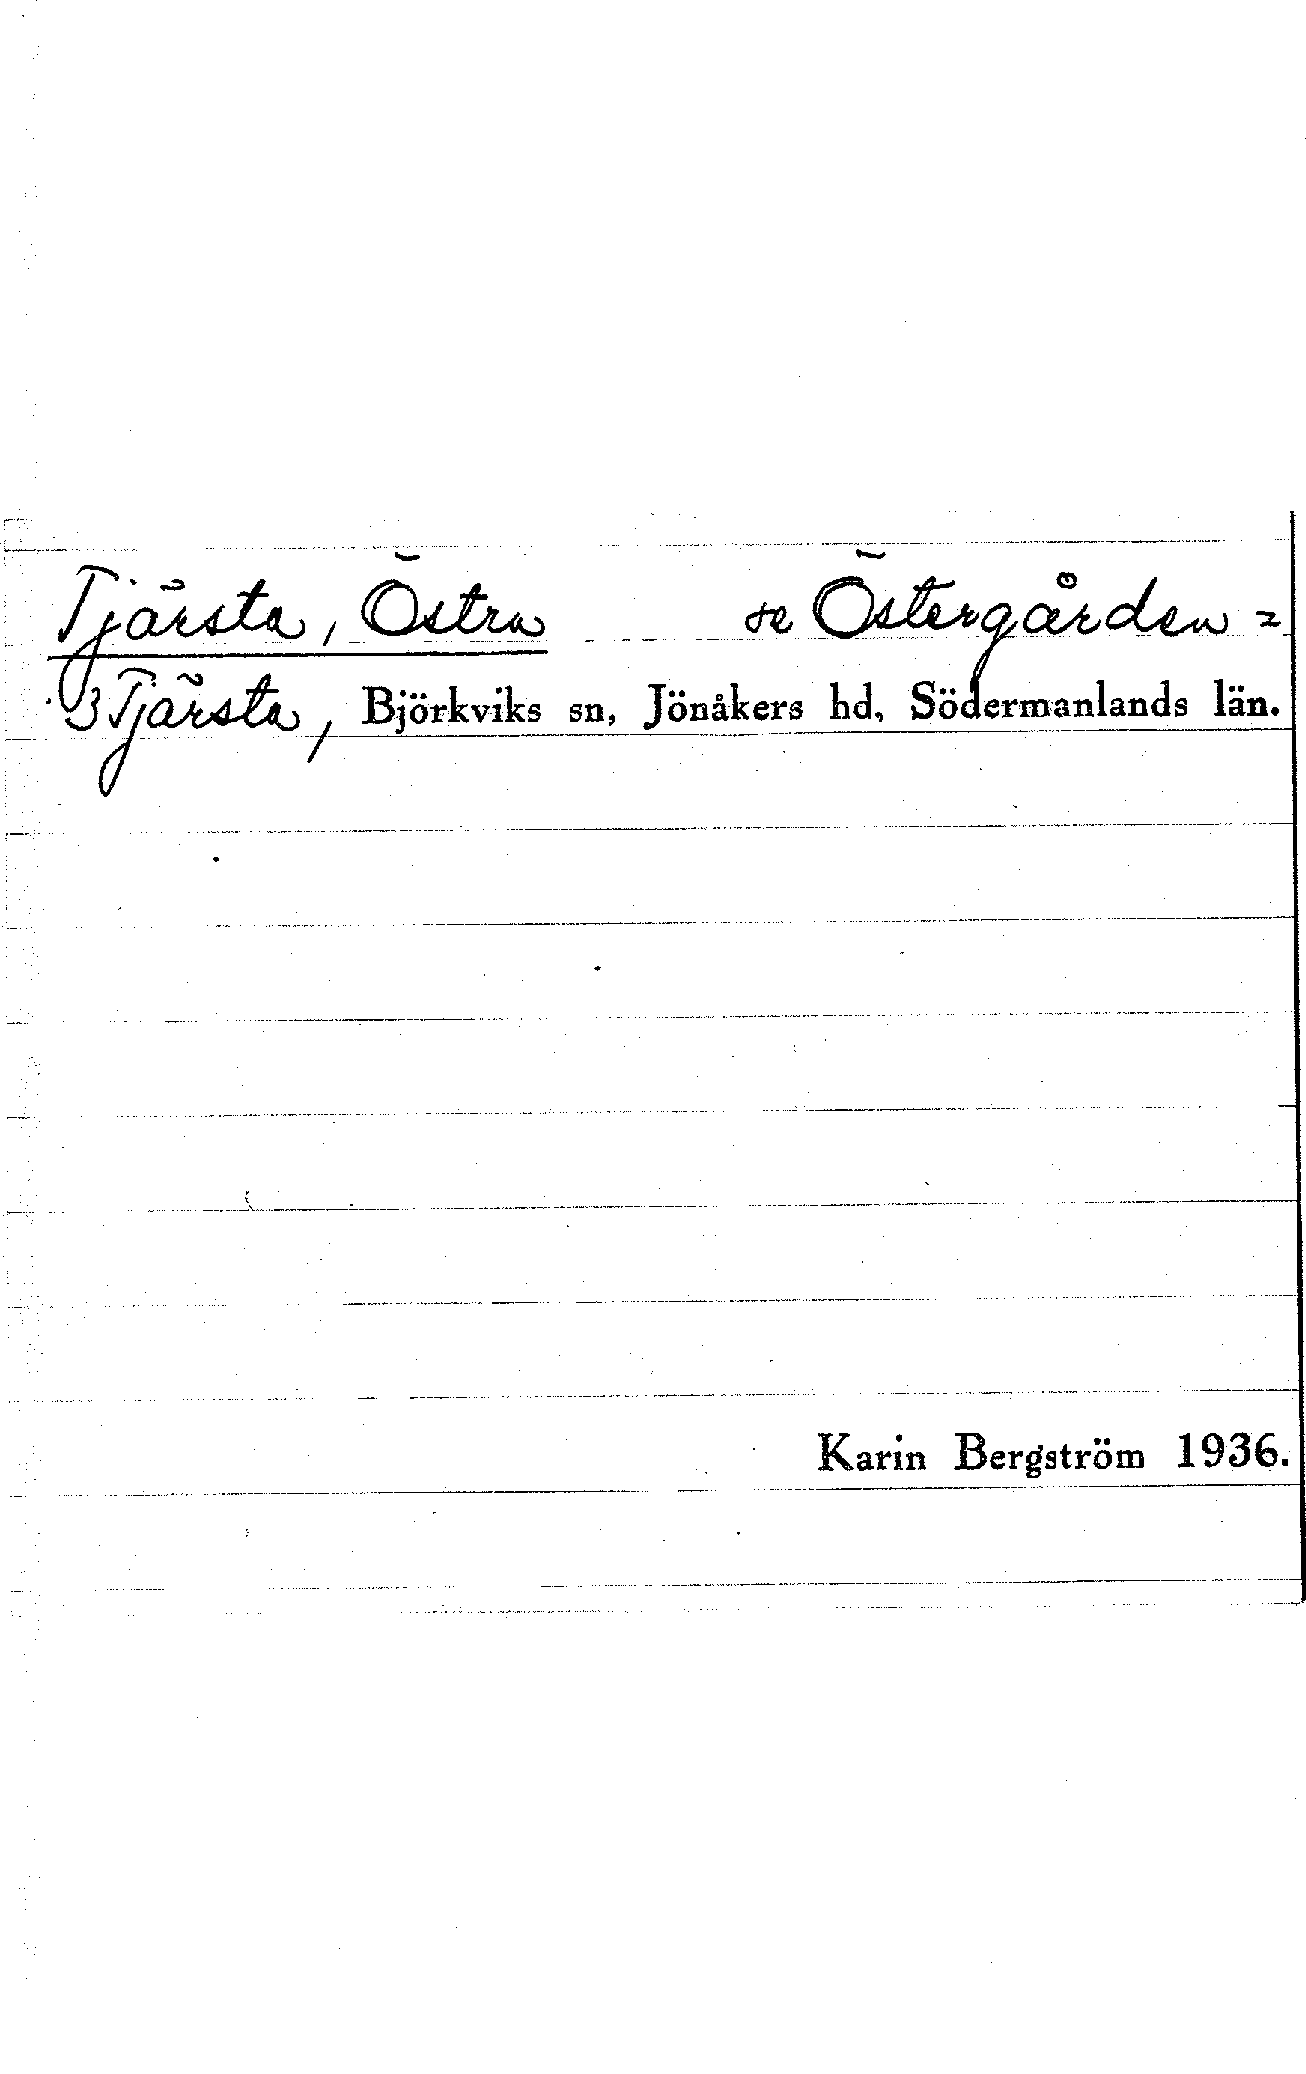 Tjärsta, Östra se Östergården =
3 Tjärsta, Björkviks sn, Jönåkers hd, Södermanlands län.
Karin Bergström 1936.